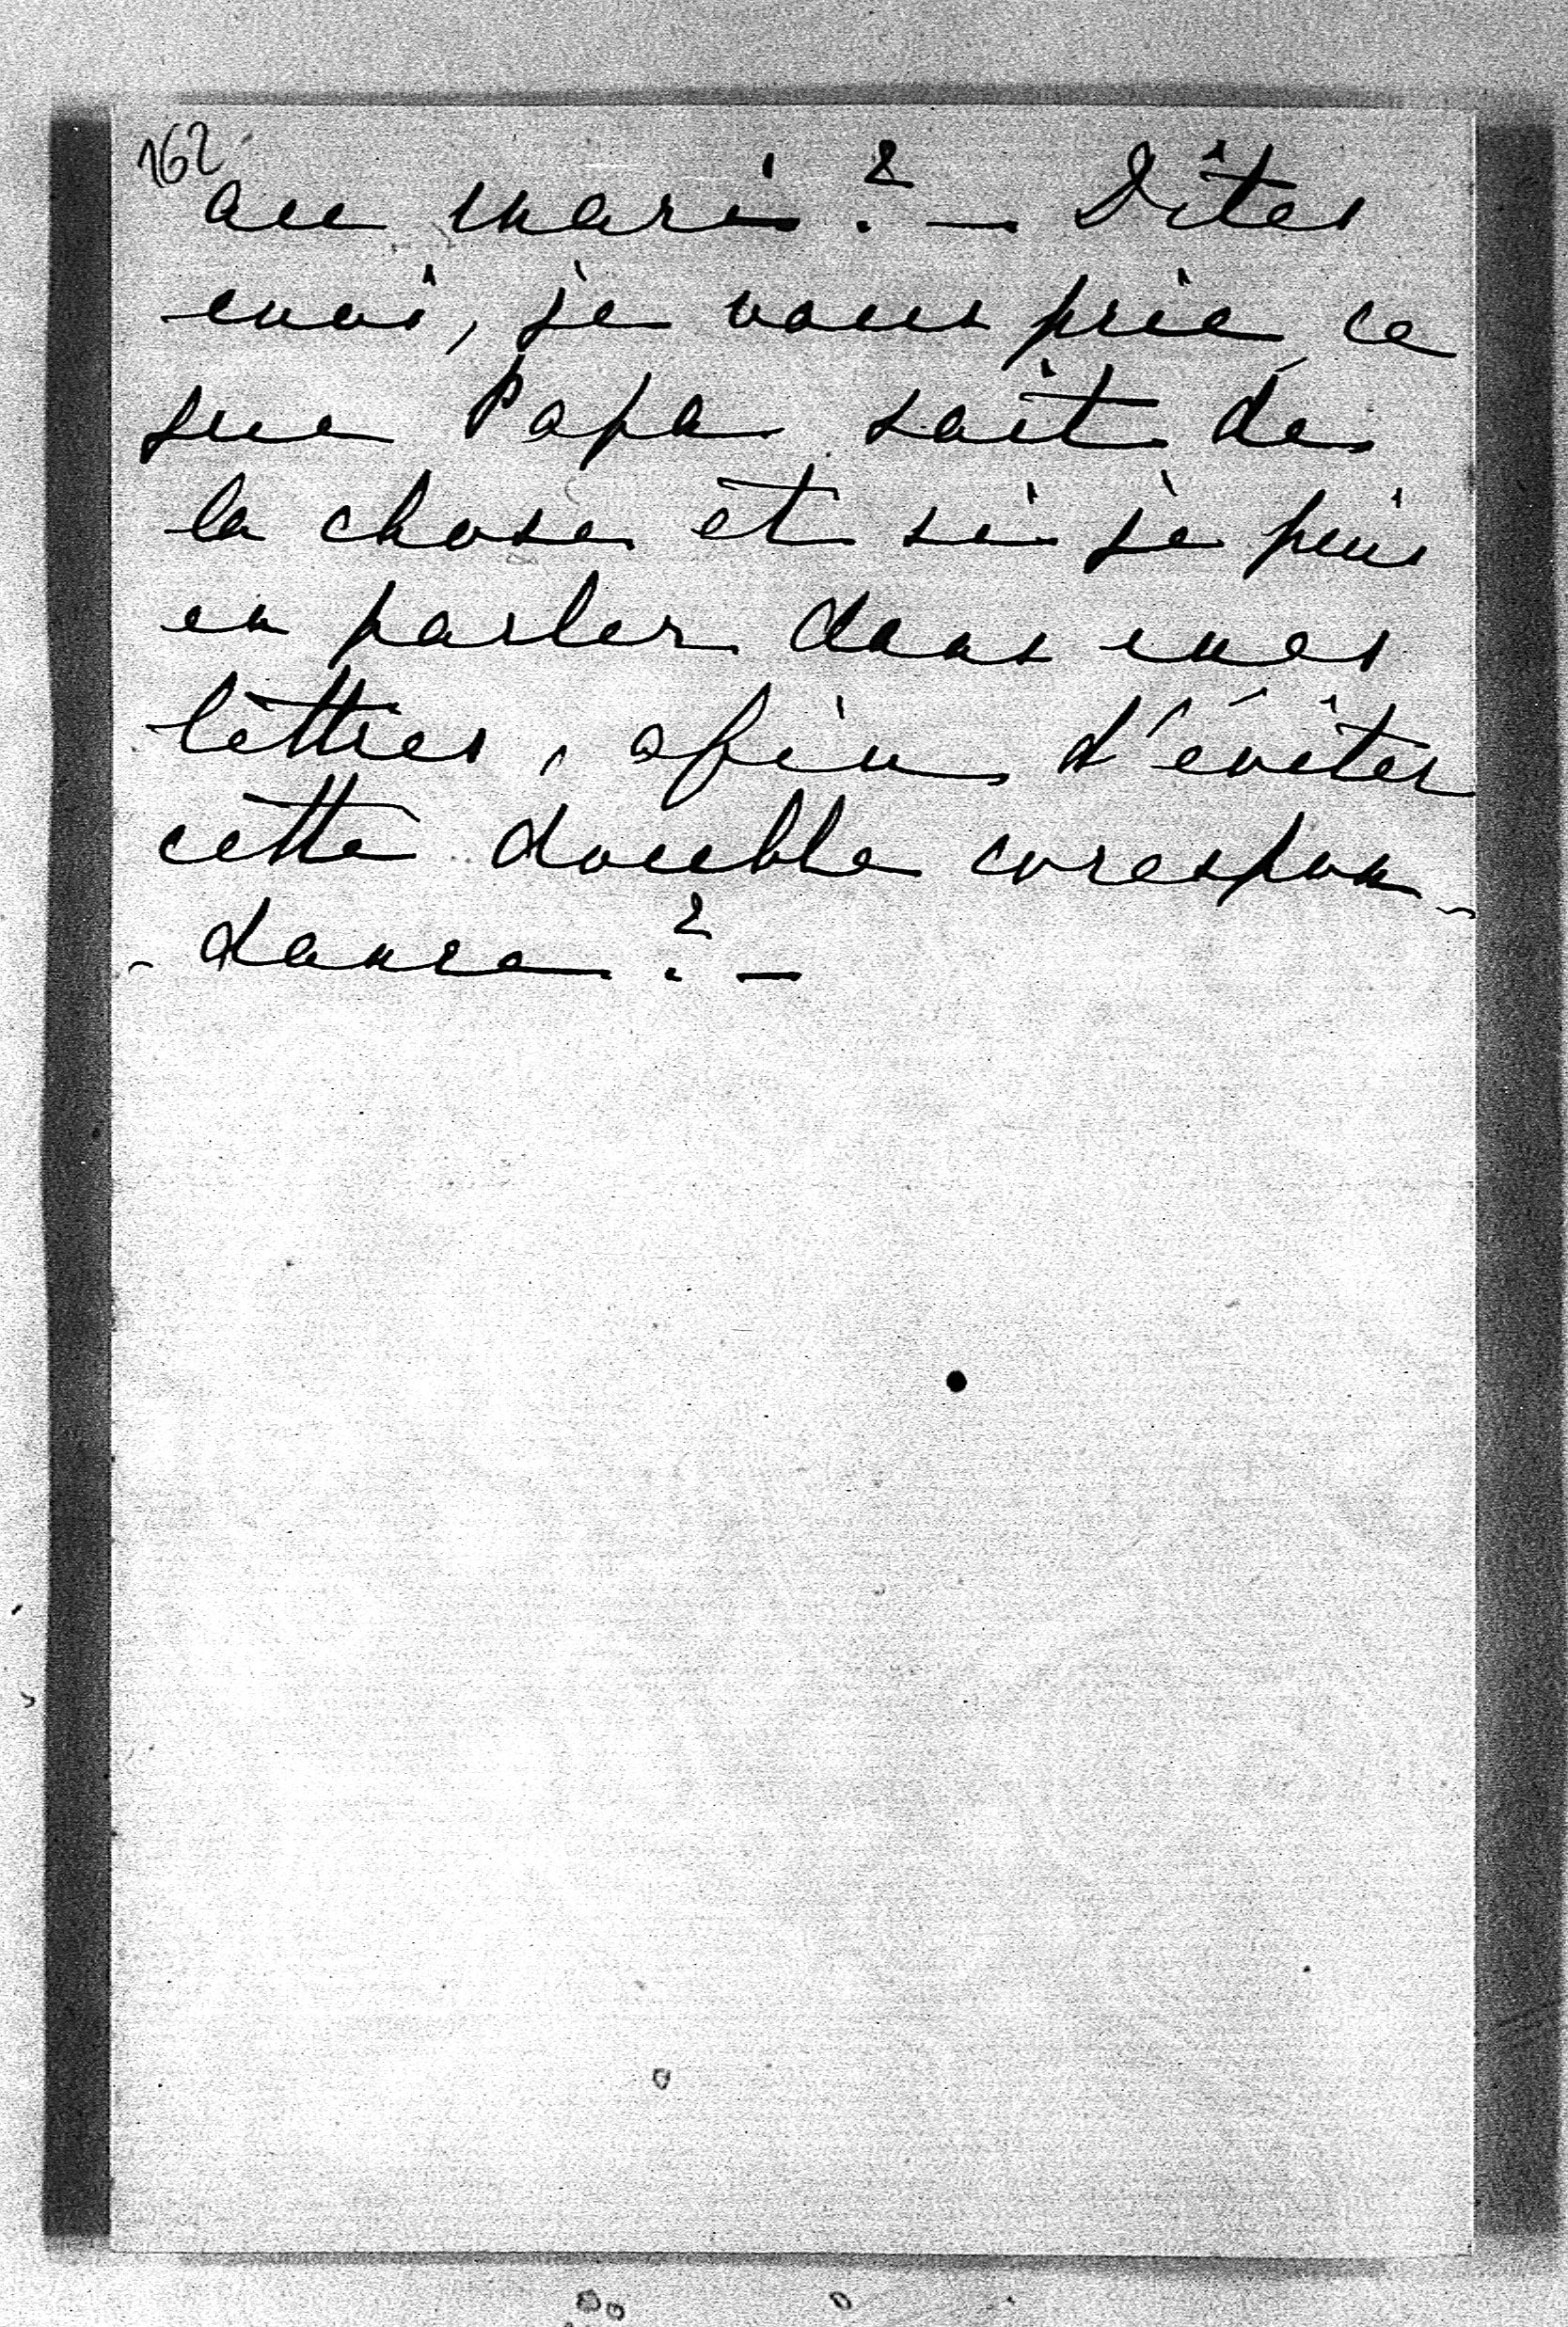 162
au mari ? — Dîtes
moi, je vous prie ce
que Papa sait de
la chose et si je puis
en parler dans mes
lettres, afin d'éviter
cette double corespon-
- dance ? —